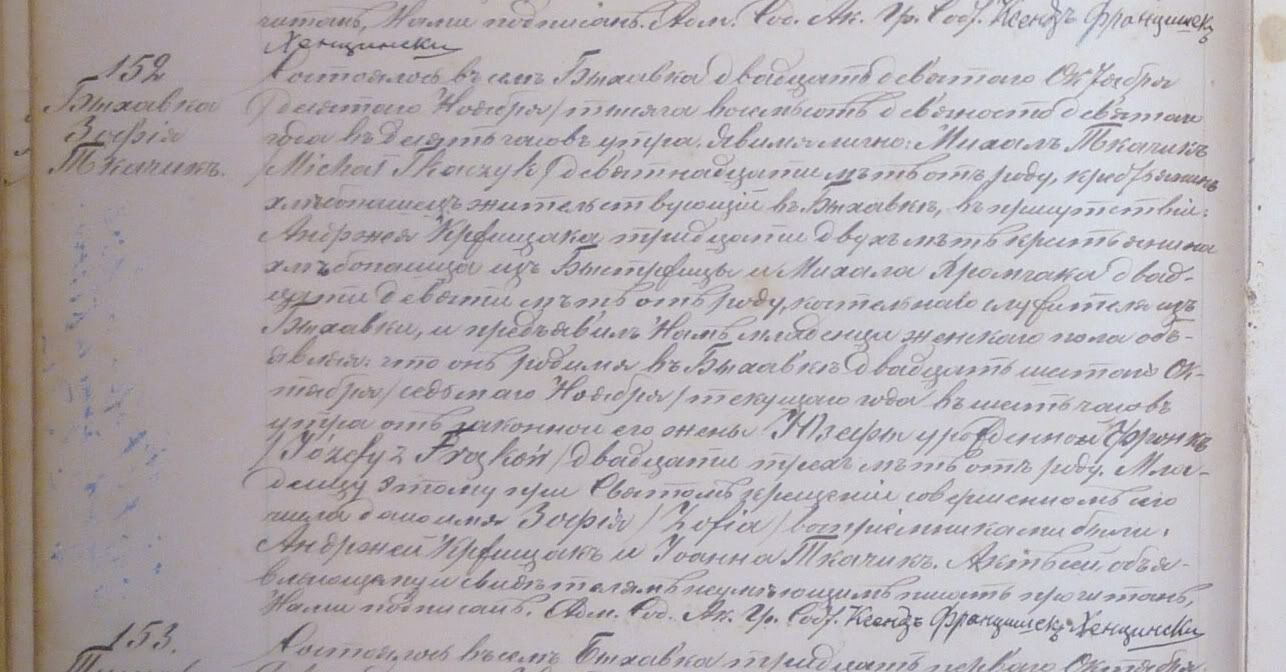 читанъ, Нами подписанъ. Адм. Сод. Ак. Гр. Сост. Ксендзъ Францишекъ
Хенцински
152
Быхавка
Зофія
Ткачикъ.
Состоялось въ семъ Быхавка двадцать девятаго Октября
/десятаго Ноября/ тысяча восемьсотъ девяносто девятаго
года въ десять часовъ утра. Явился лично: Михалъ Ткачикъ
/Michał Tkaczyk/ девятнадцати лѣтъ отъ роду, крестьянинъ
хлѣбопашецъ жительствующій въ Быхавкѣ, въ присутствіи:
Андржея тридцати двухъ лѣтъ крестьянина
хлѣбопашца изъ Быстржицы и Михала двад-
цати девяти лѣтъ отъ роду, костельнаго служителя изъ
Быхавки, и предъявилъ Намъ младенца женскаго пола объ-
являя: что онъ родился въ Быхавкѣ двадцать шестаго Ок-
тября /седьмаго Ноября/ текущаго года въ шесть часовъ
утра отъ законной его жены Юзефы урожденной Фронкъ
/Józefy z Frąków/ двадцати трехъ лѣтъ отъ роду. Мла-
денцу этому при Святомъ крещеніи совершенномъ сего
числа дано имя Зофія /Zofia/ воспріемниками были:
Андржей и Іоанна Ткачикъ. Актъ сей объя-
вляющему и свидѣтелямъ неумѣющимъ писать прочитанъ,
Нами подписанъ. Адм. Сод. Ак. Гр. Сост. Ксендзъ Францишекъ Хенцински
153.
Состоялось въ семъ Быхавка тридцать перваго Октября